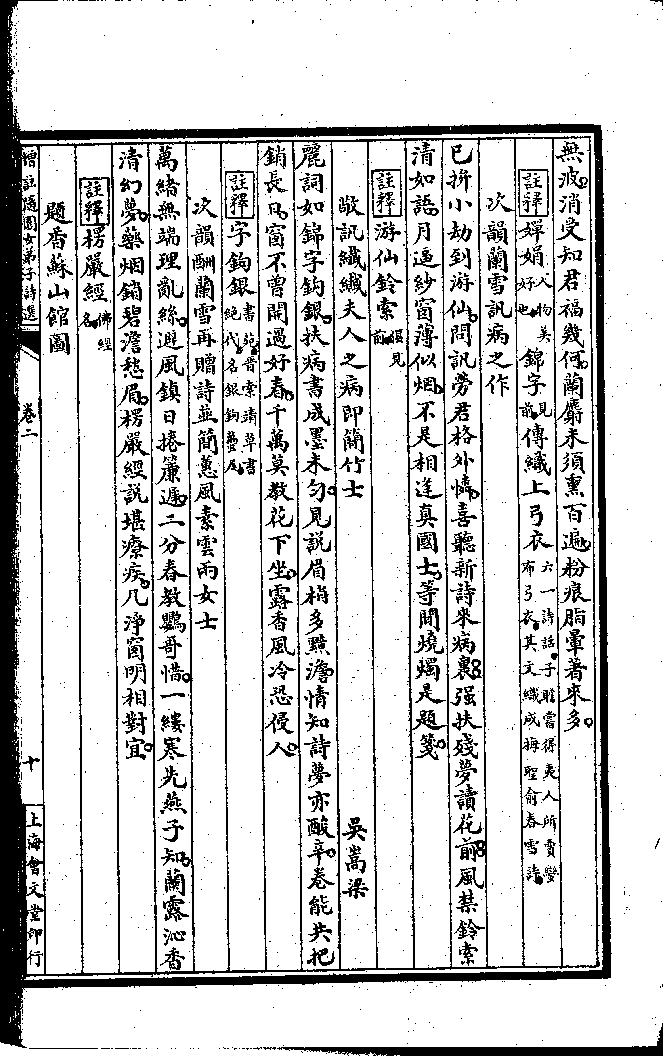 無波消受知君福幾何蘭麝未須熏百遍粉痕脂暈著來多
註釋 嬋娟人物美好也 錦字見前 傳織上弓衣六一詩話子瞻嘗得夷人所賣蠻布弓衣其文織成梅聖俞春雪詩
次韻蘭雪訊病之作
已拚小劫到游仙問訊勞君格外憐喜聽新詩來病裏强扶殘夢讀花前風禁鈴索
清如語月逗紗窗薄似烟不是相逢真國士等閒燒燭是題箋
註釋 游仙鈴索俱見前
敬訊纖纖夫人之病即簡竹士 吳嵩梁
麗詞如錦字鉤銀扶病書成墨未勻見說眉梢多黯澹情知詩夢亦酸辛卷能共把
銷長日窗不曾開過好春千萬莫教花下坐露香風冷恐侵人
註釋 字鉤銀書苑晉索靖草書絕代名銀鉤蠆尾
次韻酬蘭雪再贈詩並簡蕙風素雲兩女士
萬緒無端理亂絲避風鎮日捲簾遲二分春教鸚哥惜一縷寒先燕子知蘭露沁香
清幻夢藥烟銷碧澹愁眉楞嚴經說堪療疾几淨窗明相對宜
註釋 楞嚴經佛經名
題香蘇山館圖
增註隨園女弟子詩選
卷二
十
上海會文堂印行